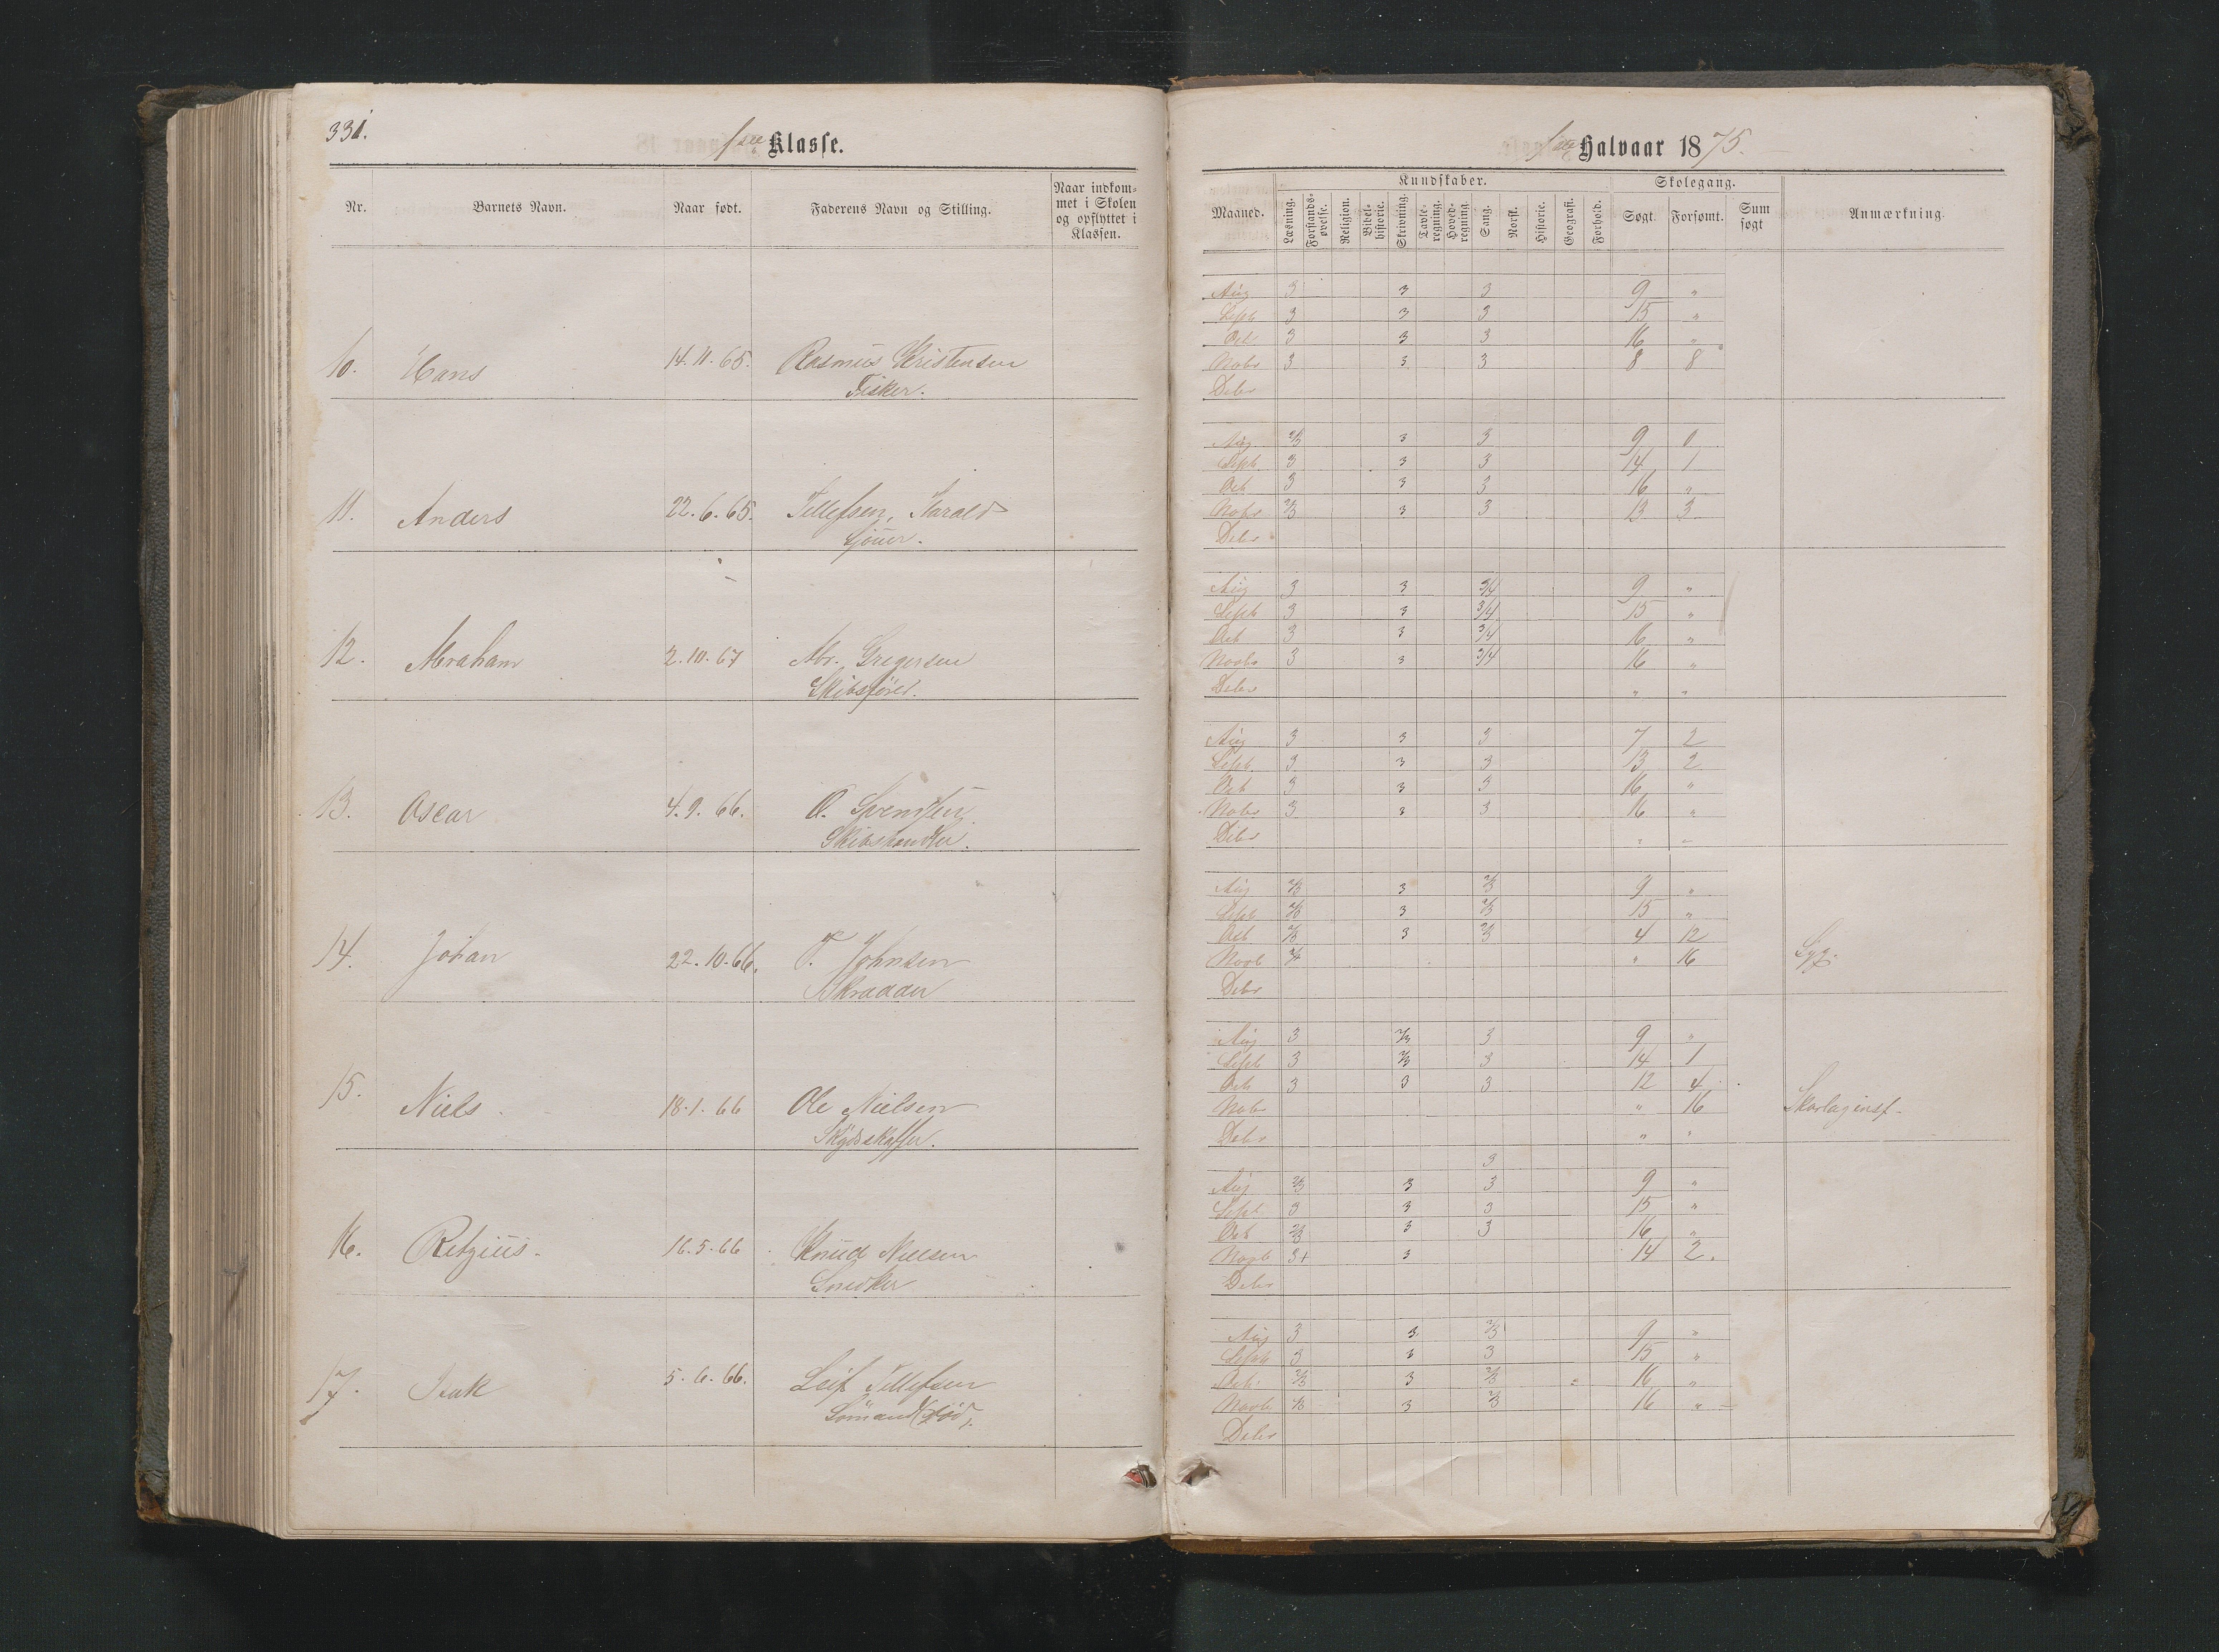 331.
1ste Klasse.
Nr. Barnets Navn. Naar født. Faderens Navn og Stilling. Naar indkommet i Skolen og opflyttet i Klassen.
10. Hans 14.11.65. Rasmus Kristensen
Fisker.
11. Anders 22.6.65. Tellefsen, Harald
Sjouer.
12. Abraham 2.10.67 Abr. Gregersen
Skibsfører.
13. Oscar 4.9.66. O. Svendsen
Skibshandler.
14. Johan 22.10.66. T. Johnsen
Skrædder
15. Niels 18.1.66 Ole Nielsen
Skydsskaffer.
16. Retzius. 16.5.66 Knud Nielsen
Snedker
17. Isak 5.6.66. Leif Tellefsen
Sömand (död).
Halvaar 1875.
Kundskaber. Skolegang.
Maaned. Læsning. Forstandsøvelse. Religion. Bibelhistorie. Skrivning. Tavleregning. Hovedregning. Sang. Norsk. Historie. Geografi. Forhold. Søgt. Forsømt. Sum søgt Anmærkning.
Aug 3 3 3 9 "
Sept 3 3 3 15 "
Oct 3 3 3 16 "
Nobr 3 3 3 8 8
Debr
Aug 2/3 3 3 9 0
Sept 3 3 3 14 1
Oct 3 3 3 16 "
Nobr 2/3 3 3 13 3
Debr
Aug 3 3 3/4 9 "
Sept 3 3 3/4 15 "
Oct 3 3 3/4 16 "
Novbr 3 3 3/4 16 "
Debr " "
Aug 3 3 3 7 2
Sept 3 3 3 13 2
Oct 3 3 3 16 "
Nobr 3 3 3 16 "
Debr " "
Aug 2/3 3 2/3 9 "
Sept 2/3 3 2/3 15 "
Oct 2/3 3 2/3 4 12
Novb " 16 Syg.
Debr
Aug 3 2/3 3 9 "
Sept 3 2/3 3 14 1
Oct 3 3 3 12 4
Nobr " 16 Skarlaginsf.
Debr " "
3
Aug 2/3 3 3 9 "
Sept 3 3 3 15 "
Oct 2/3 3 3 16 "
Novb 3+ 3 14 2.
Debr
Aug 3 3 2/3 9 "
Sept 3 3 3 15 "
Oct 2/3 3 2/3 16 "
Novb 2/3 3 2/3 16 "
Debr